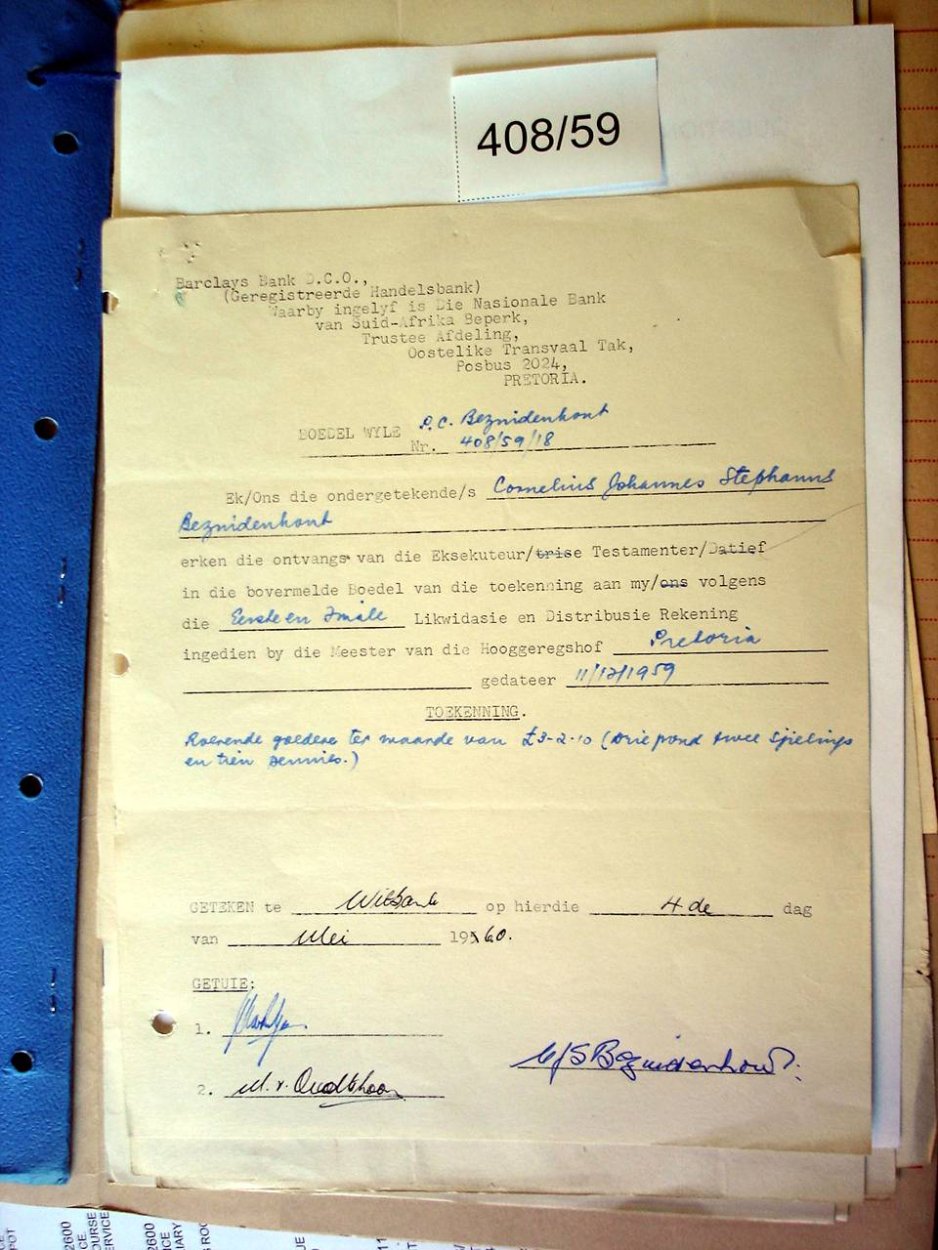 408/59
Barclays Bank D.C.O.,
(Geregistreerde Handelsbank)
Waarby ingelyf is Die Nasionale Bank
van Suid-Afrika Beperk,
Trustee Afdeling,
Oostelike Transvaal Tak,
Posbus 2024,
PRETORIA.
BOEDEL WYLE P.C. Bezuidenhout
Nr. 408/59/18
Ek/Ons die ondergetekende/s Cornelius Johannes Stephanus
Bezuidenhout
erken die ontvangs van die Eksekuteur/trise Testamenter/Datief
in die bovermelde Boedel van die toekenning aan my/ons volgens
die Eerste en Finale Likwidasie en Distribusie Rekening
ingedien by die Meester van die Hooggeregshof Pretoria
gedateer 11/12/1959
TOEKENNING.
Roerende goedere ter waarde van £3-2-10 (Drie pond twee sjielings
en tien pennies.)
GETEKEN te Witbank op hierdie 4de dag
van Mei 1960.
GETUIE:
1.
2. M. v. Oudtshoorn
CJS Bezuidenhout
2600
2600